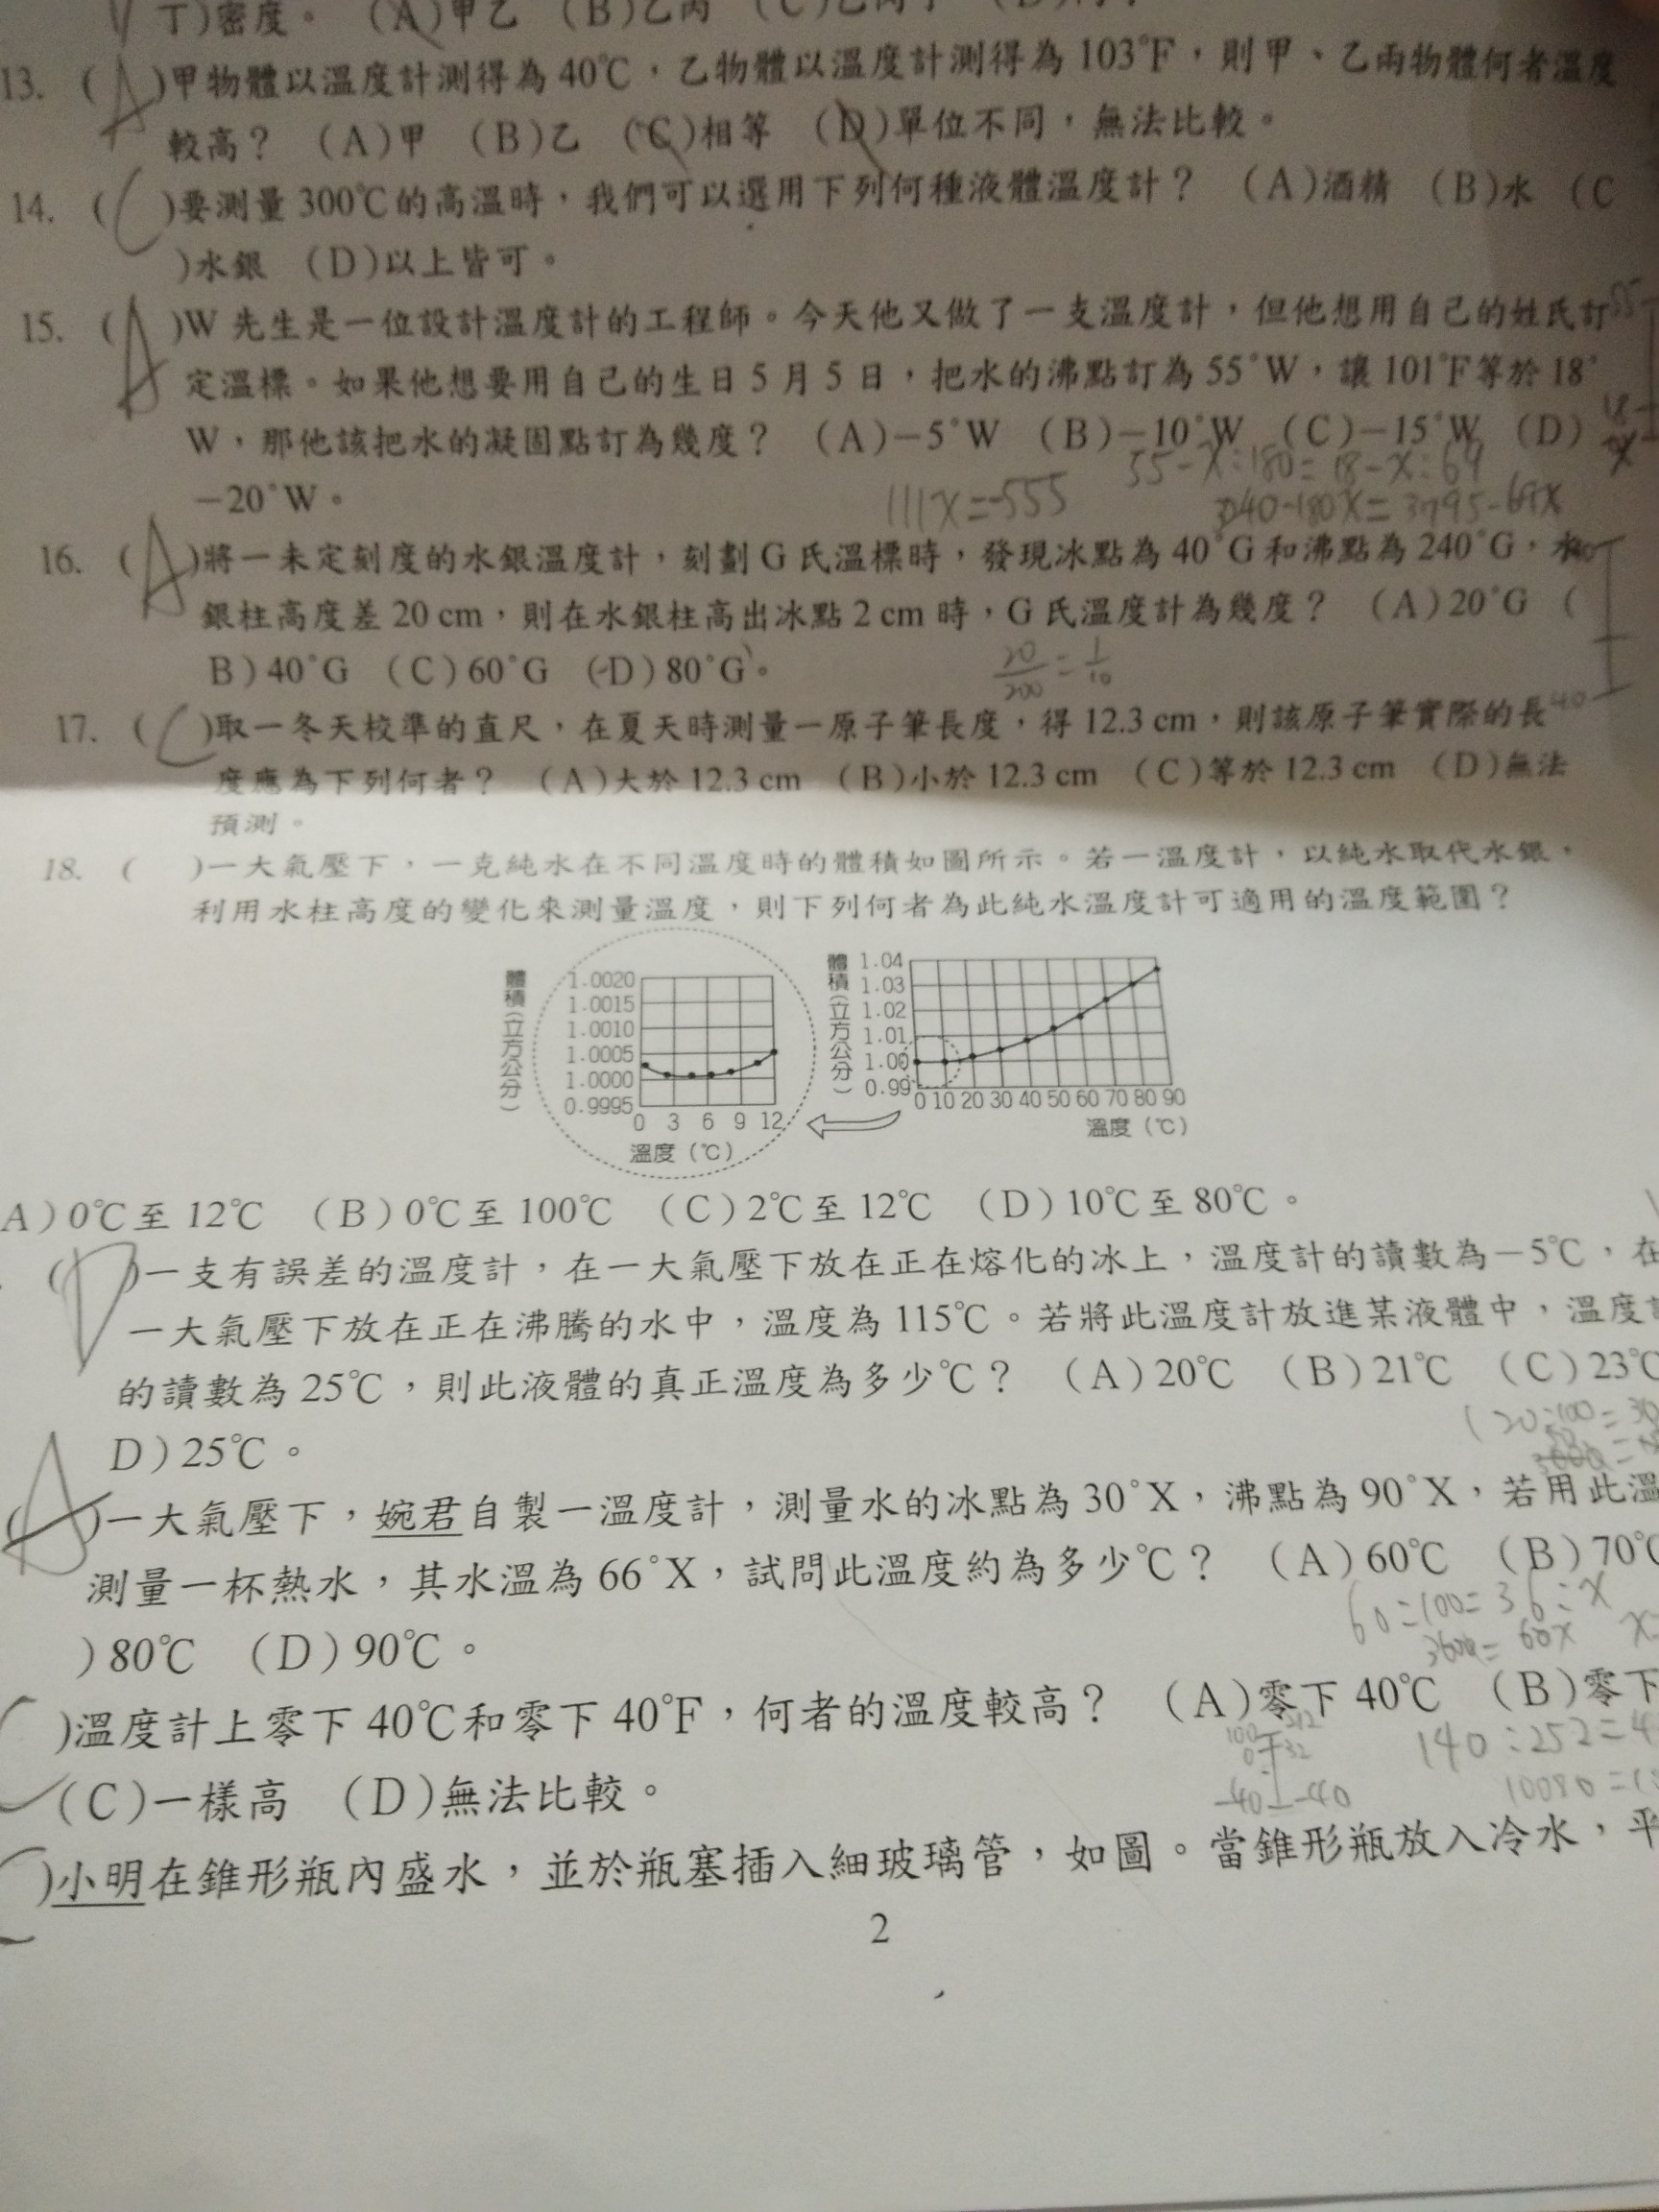 丁)密度。 (A)甲乙 (B)乙丙
13. (A)甲物體以溫度計測得為40℃，乙物體以溫度計測得為103℉，則甲、乙兩物體何者溫度
較高？ (A)甲 (B)乙 (C)相等 (D)單位不同，無法比較。
14. (C)要測量300℃的高溫時，我們可以選用下列何種液體溫度計？ (A)酒精 (B)水 (C
)水銀 (D)以上皆可。
15. (A)W先生是一位設計溫度計的工程師。今天他又做了一支溫度計，但他想用自己的姓氏訂
55
定溫標。如果他想要用自己的生日5月5日，把水的沸點訂為55°W，讓101℉等於18°
18
W，那他該把水的凝固點訂為幾度？ (A)－5°W (B)－10°W (C)－15°W (D)
x
55-x:180=18-x:69
－20°W。
111x=-555
3240-180x=3795-69x
16. (A)將一未定刻度的水銀溫度計，刻劃G氏溫標時，發現冰點為40°G和沸點為240°G，水
銀柱高度差20 cm，則在水銀柱高出冰點2 cm時，G氏溫度計為幾度？ (A)20°G (
B)40°G (C)60°G (D)80°G。
20/200=1/10
17. (C)取一冬天校準的直尺，在夏天時測量一原子筆長度，得12.3 cm，則該原子筆實際的長
40
度應為下列何者？ (A)大於12.3 cm (B)小於12.3 cm (C)等於12.3 cm (D)無法
預測。
18. ( )一大氣壓下，一克純水在不同溫度時的體積如圖所示。若一溫度計，以純水取代水銀，
利用水柱高度的變化來測量溫度，則下列何者為此純水溫度計可適用的溫度範圍？
體積(立方公分)
1.0020
1.0015
1.0010
1.0005
1.0000
0.9995
0 3 6 9 12
溫度(℃)
體積(立方公分)
1.04
1.03
1.02
1.01
1.00
0.99
0 10 20 30 40 50 60 70 80 90
溫度(℃)
A)0℃至12℃ (B)0℃至100℃ (C)2℃至12℃ (D)10℃至80℃。
(D)一支有誤差的溫度計，在一大氣壓下放在正在熔化的冰上，溫度計的讀數為－5℃，在
一大氣壓下放在正在沸騰的水中，溫度為115℃。若將此溫度計放進某液體中，溫度計
的讀數為25℃，則此液體的真正溫度為多少℃？ (A)20℃ (B)21℃ (C)23℃
120:100=30
D)25℃。
(A)一大氣壓下，婉君自製一溫度計，測量水的冰點為30°X，沸點為90°X，若用此溫
測量一杯熱水，其水溫為66°X，試問此溫度約為多少℃？ (A)60℃ (B)70℃
60:100=36:x
3600=60x x=
)80℃ (D)90℃。
)溫度計上零下40℃和零下40℉，何者的溫度較高？ (A)零下40℃ (B)零下
100 212
0 32
-40 -40
140:252=4
10080=1
(C)一樣高 (D)無法比較。
)小明在錐形瓶內盛水，並於瓶塞插入細玻璃管，如圖。當錐形瓶放入冷水，平
2